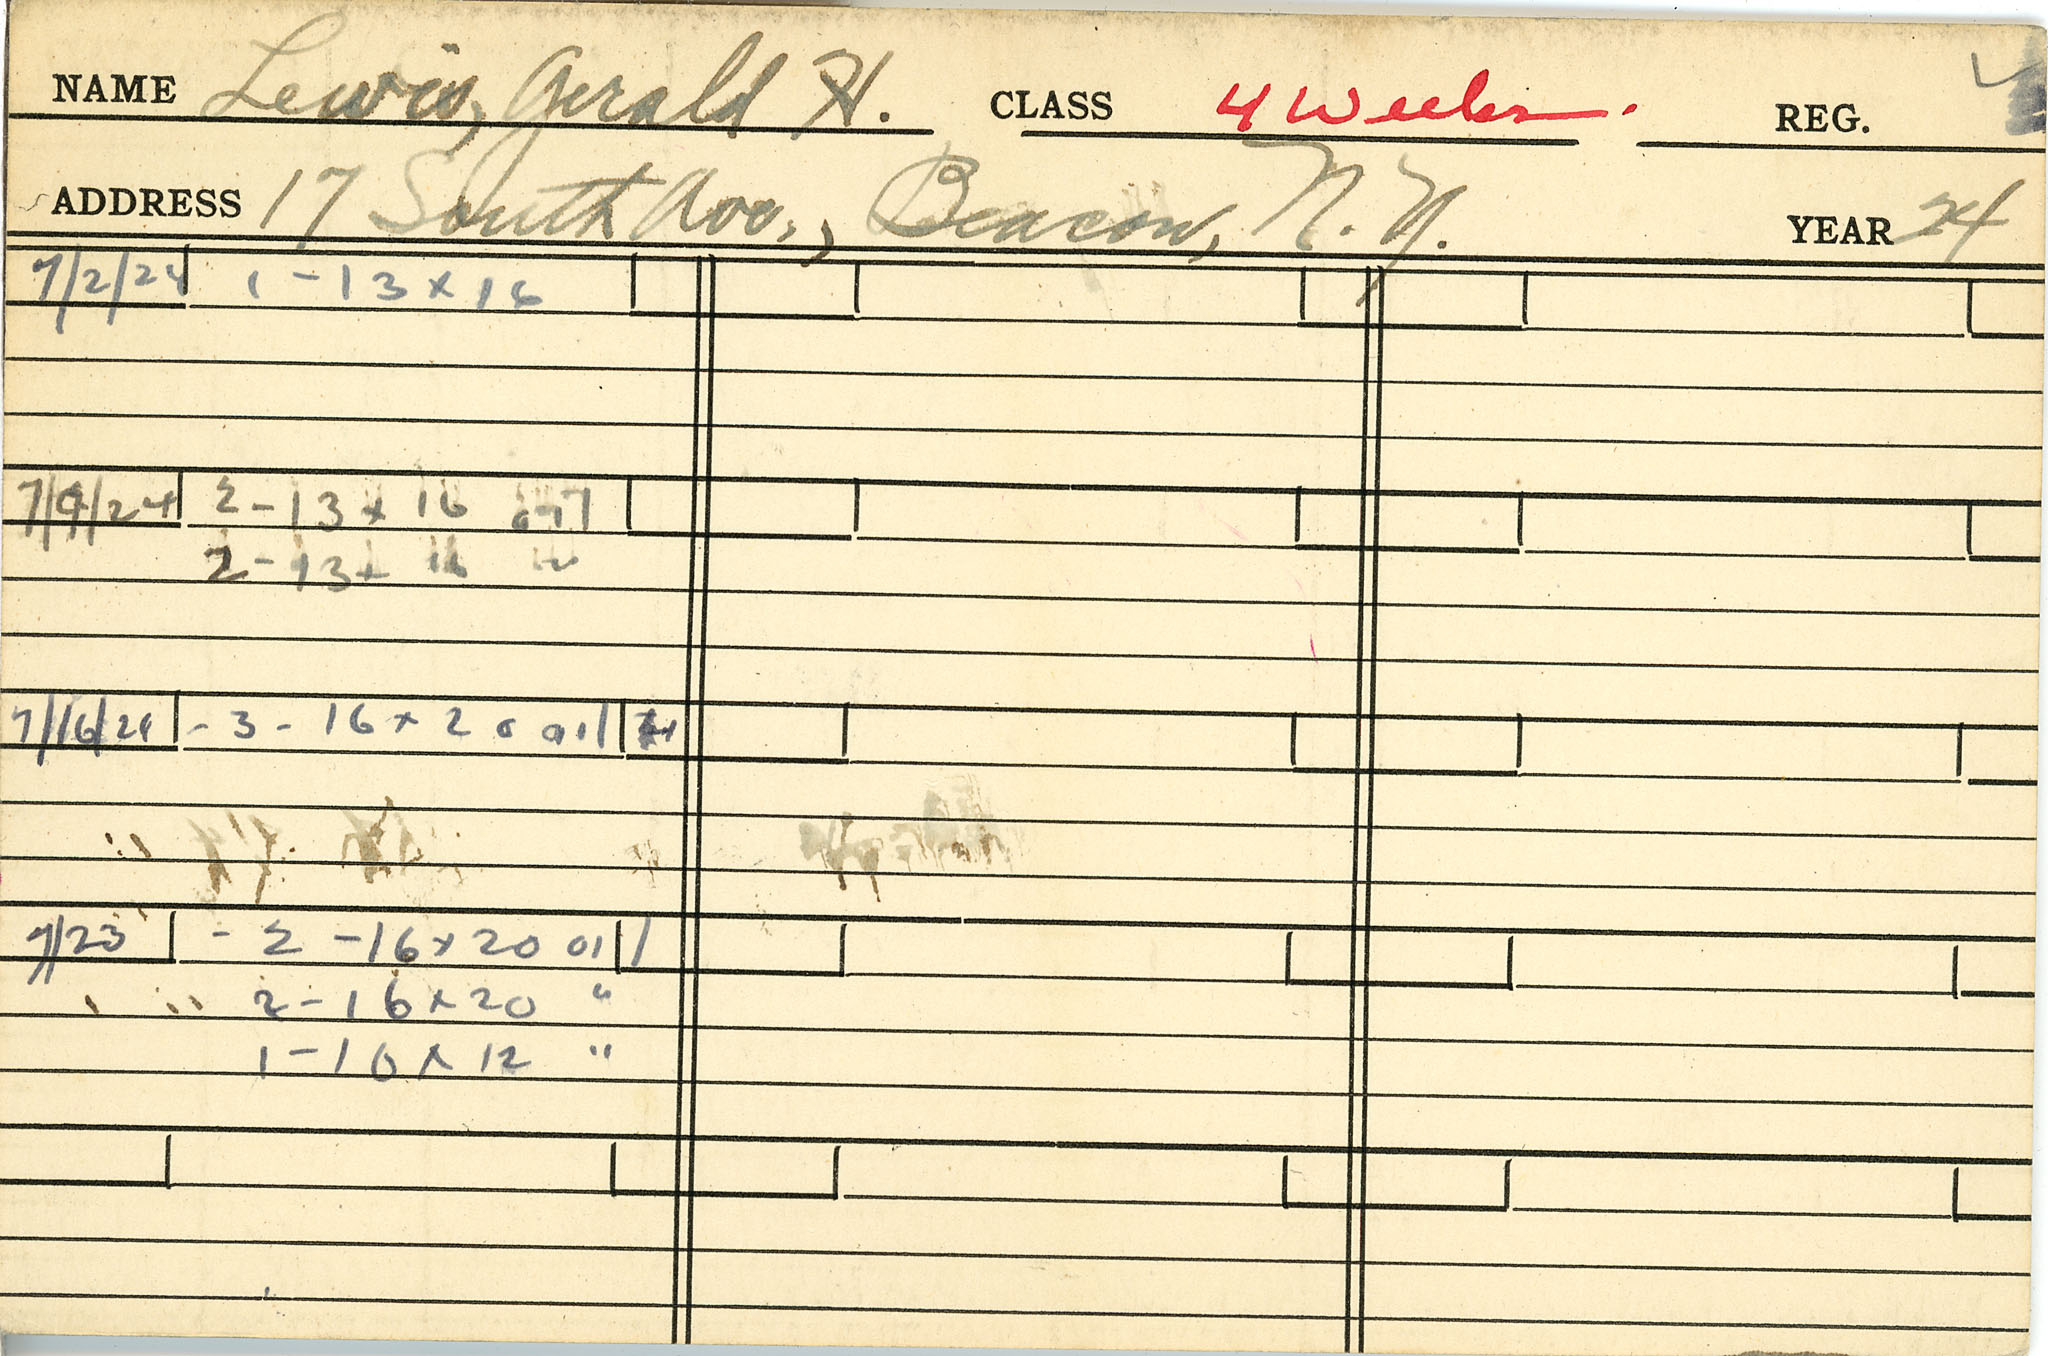 NAME Lewis, Gerald H. CLASS 4 Weeks. REG.
ADDRESS 17 South Ave., Beacon, N.Y. YEAR 24
7/2/24 1-13x16
7/9/24 2-13x16
2-13x16
7/16/24 -3-16x20 oil
7/23 -2-16x20 oil
2-16x20 "
1-10x12 "